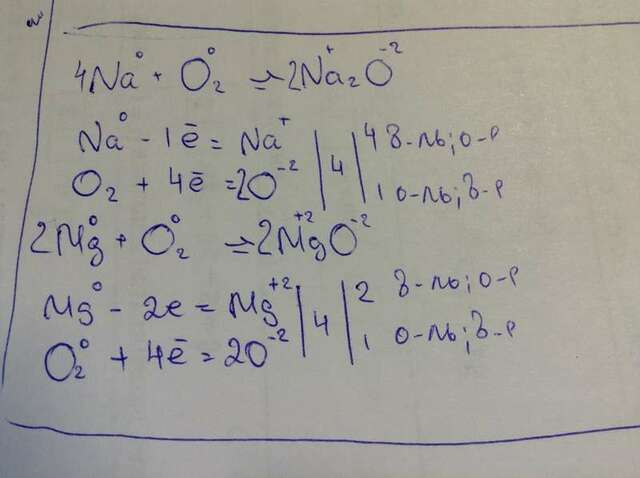 4Na⁰ + O₂⁰ → 2Na₂⁺O⁻²
Na⁰ - 1ē = Na⁺ | 4 | 4 в-ль; о-р
O₂ + 4ē = 2O⁻² | 1 о-ль; в-р
2Mg⁰ + O₂⁰ → 2Mg⁺²O⁻²
Mg⁰ - 2e = Mg⁺² | 4 | 2 в-ль; о-р
O₂⁰ + 4ē = 2O⁻² | 1 о-ль; в-р